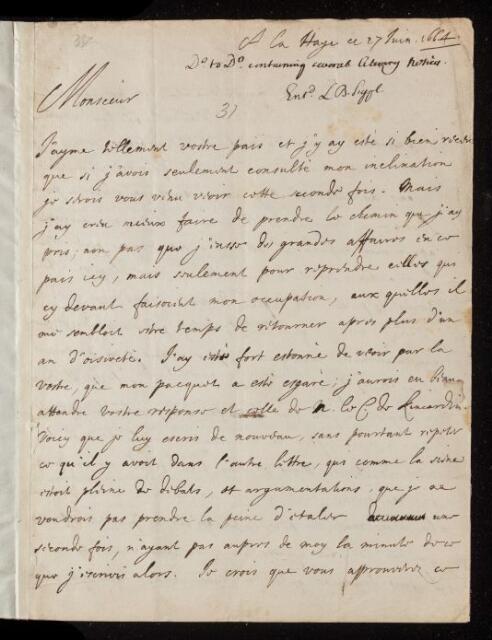 A la Haye ce 27 Juin. 1664.
Do to Do. containing several literary notices
Entd. L.B.
Monsieur
31
J'ayme tellement vostre pais et j'y ay esté si bien receu
que si j'avois seulement consulté mon inclination
je serois vous venu veoir cette seconde fois. Mais
j'ay creu mieux faire de prendre le chemin que j'ay
pris; non pas que j'eusse des grandes affaires en ce
pais icy, mais seulement pour reprendre celles qui
cy devant faisoient mon occupation, aux quelles il
me sembloit estre temps de retourner apres plus d'un
an d'oisiveté. J'ay esté fort estonné de veoir par la
vostre, que mon pacquet a esté esgaré; j'aurois eu beau
attendre vostre response et celle de M. le C. de Kincardin.
Voicy que je luy escris de nouveau, sans pourtant repeter
ce qu'il y avoit dans l'autre lettre, qui comme la siene
estoit pleine de debats, et argumentations, que je ne
voudrois pas prendre la peine d'estaler une
seconde fois, n'ayant pas aupres de moy la minute de ce
que j'escrivis alors. Je crois que vous approuverez ce